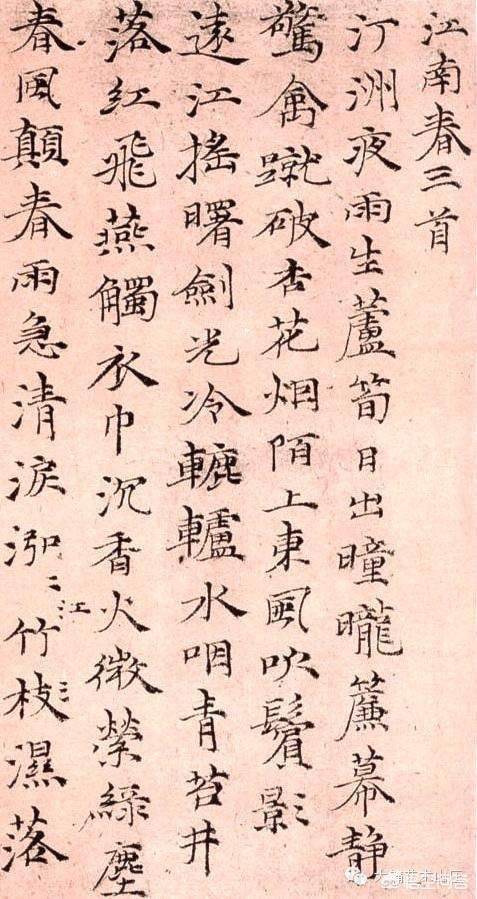 江南春三首
汀洲夜雨生蘆筍日出曈曨簾幕静
驚禽蹴破杏花烟陌上東風吹鬢影
遠江搖曙劍光冷轆轤水咽青苔井
落紅飛燕觸衣巾沉香火微縈綠塵
春風顛春雨急清淚泓〻江竹枝濕落